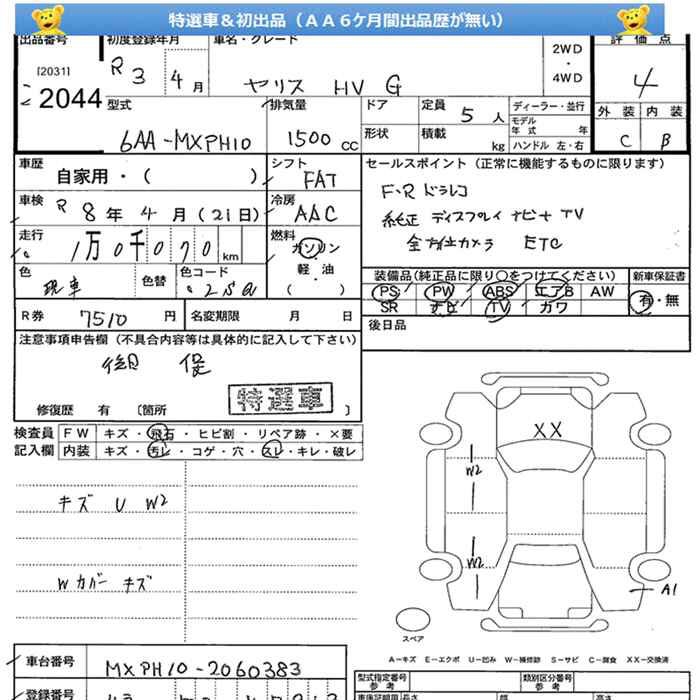 特選車＆初出品（ＡＡ６ケ月間出品歴が無い）
出品番号 初度登録年月 車名・グレード 2WD ・ 4WD 評価点
[2031] R3年4月 ヤリス HV G 4
2044
型式 排気量 ドア 定員 5人 ディーラー・並行 外装 内装
モデル年式 年
6AA-MXPH10 1500cc 形状 積載 kg ハンドル 左・右 C B
車歴 シフト セールスポイント（正常に機能するものに限ります）
自家用・（ ） FAT F・R ドラレコ
車検 R8年4月（21日） 冷房 AAC 純正 ディスプレイ ナビ+TV
走行 1万0千070km 燃料 ガソリン 全方位カメラ ETC
色 色替 色コード 軽・油 装備品（純正品に限り○をつけてください） 新車保証書
( ) PS PW ABS エアB AW 有・無
SR ナビ TV カワ
R券 7510円 名変期限 月 日 後日品
注意事項申告欄（不具合内容等は具体的に記入して下さい）
特選車
修復歴 有 〔箇所 〕
検査員 FW キズ・飛石・ヒビ割・リペア跡・×要
記入欄 内装 キズ・汚レ・コゲ・穴・スレ・キレ・破レ
XX
W2
キズ U W2
W2
Wカバー キズ
A1
スペア
A－キズ E－エクボ U－凹み W－補修跡 S－サビ C－腐食 XX－交換済
車台番号 MXPH10-2060383
型式指定番号 参考 類別区分番号 参考
登録番号